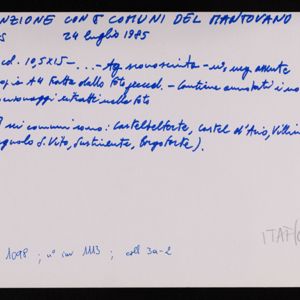 NZIONE CON 5 COMUNI DEL MANTOVANO
S 24 luglio 1985
cd. 10,5x15 - ... - Ag. sconosciuta - n°, neg. assente
opia A4 tratta dalla foto preced. - Contiene annotati i no
ersonaggi ritratti nella foto
sei comuni sono: Castelbelforte, Castel d'Ario, Villim
agnolo S. Vito, Sustinente, Borgoforte).
ITAF
1098 ; n° inv 1113 ; coll 3a-2